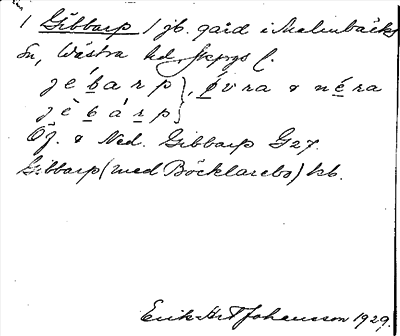 1 Gibbarp / jb. gård i Malmbäcks
sn, Västra hd, Jkpgs l.
jébarp}, övra & néra
jèbárp
Öf. & Ned. Gibbarp G27.
Gibbarp (med Böcklarebo) kb.
Erik Johansson 1929.